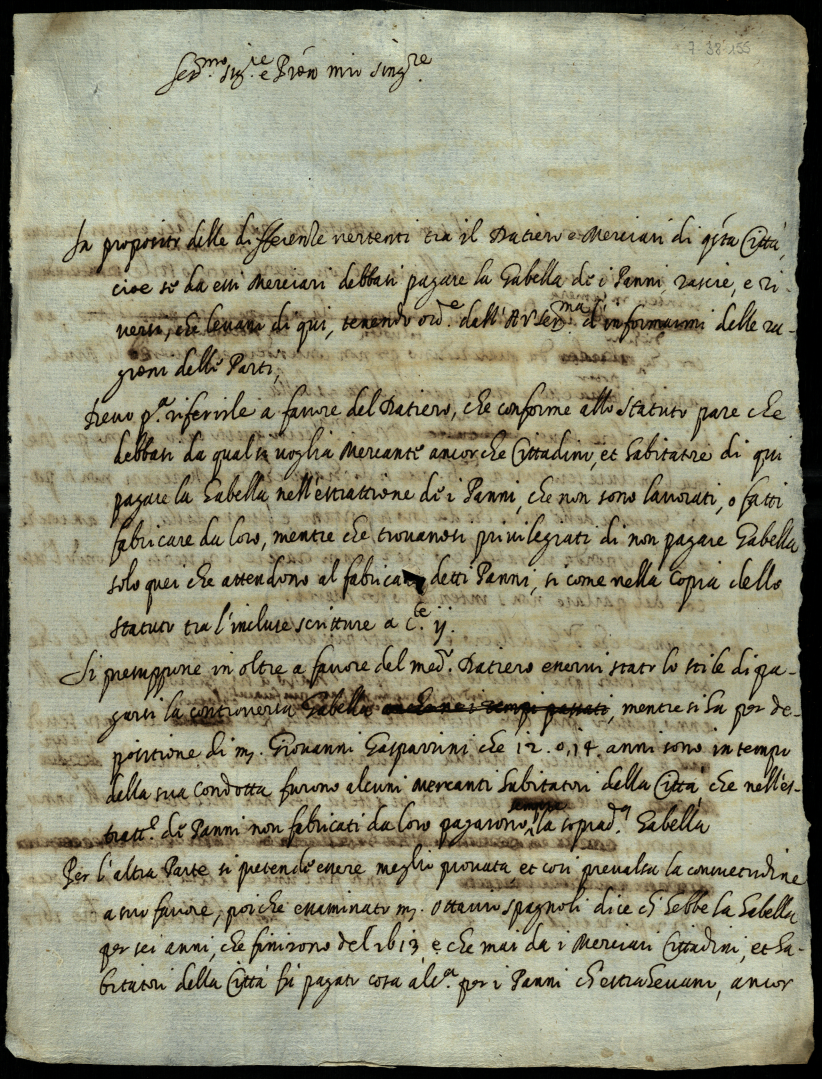 7-38-155
Ser.mo Sig.re e Prõn mio Sing.re
In proposito delle differenze vertenti tra il Datiero e Merciari di q̃sta Città,
cioè se da essi Merciari debbasi pagare la Gabella de i Panni, rascie, e ri-
versi, che levano di qui, tenendo ord.e dall'A.V. Ser.ma d'informarmi delle ra-
gioni delle Parti,
Devo p.a riferirle a favore del Datiero, che conforme allo statuto pare che
debbasi da qual si voglia Mercante ancor che Cittadino, et habitatore di qui
pagare la Gabella nell'estrattione de i Panni, che non sono lavorati, o fatti
fabricare da loro, mentre che trovansi privilegiati di non pagare Gabella
solo quei che attendono al fabricar detti Panni, si come nella Copia dello
statuto tra l'incluse scritture a c.te ij.
Si presuppone in oltre a favore del med.o Datiero esservi stato lo stile di pa-
garsi la controversa Gabella anche ne i tempi passati, mentre si ha per de-
positione di m. Giovanni Gasparrini che 12. o 14. anni sono in tempo
della sua condotta furono alcuni Mercanti habitatori della Città che nell'es-
tratt.e de Panni non fabricati da loro pagarono sempre la soprad.a Gabella
Per l'altra Parte si pretende essere meglio provata et così prevalsa la consuetudine
a suo favore, poiche essaminato m. Ottavio Spagnoli dice ch' hebbe la Gabella
per sei anni, che finirono del 1613 e che mai da i Merciari Cittadini, et ha-
bitatori della Città fù pagato cosa alc.a per i Panni ch'estrahevano, ancor